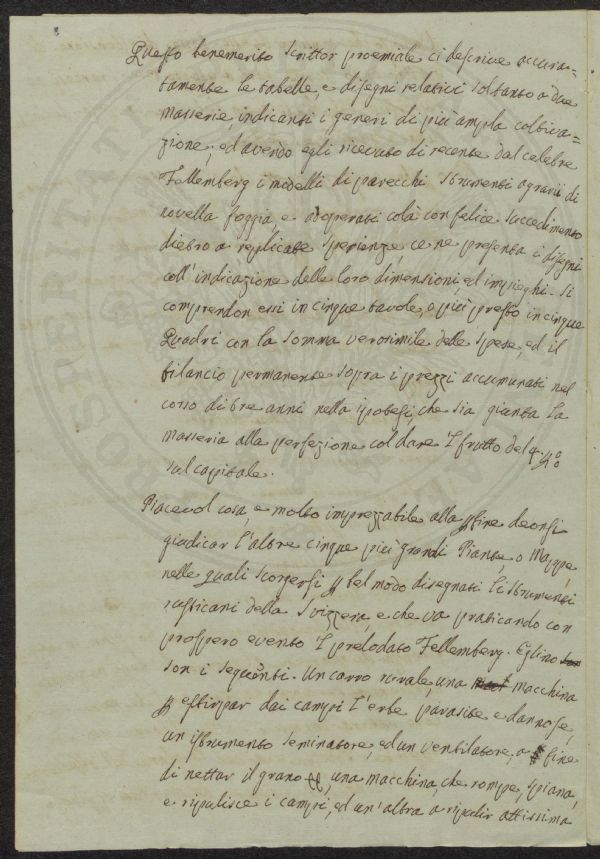 Questo benemerito scrittor proemiale ci descrive accura=
tamente le tabelle, e disegni relativi soltanto a due
masserie, indicanti i generi di più ampla coltiva=
zione, ed avendo egli ricevuto di recente dal celebre
Fellemberg i modelli di parecchi strumenti agrarii di
novella foggia, e adoperati colà con felice succedimento
dietro a replicate sperienze, ce ne presenta i disegni
coll'indicazione delle loro dimensioni, ed impieghi. Si
comprendon essi in cinque tavole, o più presto in cinque
Quadri con la somma verosimile delle spese, ed il
bilancio permanente sopra i prezzi accumunati nel
corso di tre anni nella ipotesi, che sia giunta la
masseria alla perfezione col dare l frutto del
sul capitale.
Piacevol cosa, e molto imprezzabile alla fine deonsi
giudicar l'altre cinque più grandi Piante, o Mappe,
nelle quali scorgersi bel modo disegnati li strumenti
rusticani della Svizzera, e che va praticando con
prospero evento l prelodato Fellemberg. Eglino
son i seguenti. Un carro rurale, una macchina
estirpar dai campi l'erbe parasite e dannose,
un istrumento seminatore, ed un ventilatore, a fine
di nettar il grano, una macchina, che rompe, spiana,
e ripulisce i campi, ed un'altra a ripulir attissima